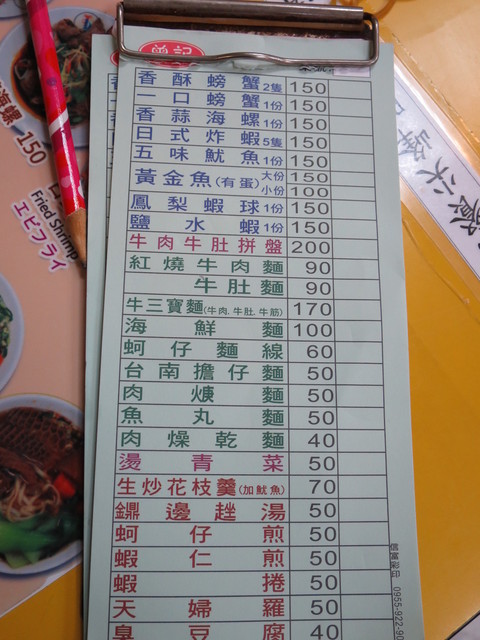 曾記
香酥螃蟹2隻 150
一口螃蟹1份 150
香蒜海螺1份 150
日式炸蝦5隻 150
五味魷魚1份 150
黃金魚(有蛋)大份 150
小份 100
鳳梨蝦球1份 150
鹽水蝦1份 150
牛肉牛肚拼盤 200
紅燒牛肉麵 90
牛肚麵 90
牛三寶麵(牛肉,牛肚,牛筋) 170
海鮮麵 100
蚵仔麵線 60
台南擔仔麵 50
肉焿麵 50
魚丸麵 50
肉燥乾麵 40
燙青菜 50
生炒花枝羹(加魷魚) 70
鼎邊趖湯 50
蚵仔煎 50
蝦仁煎 50
蝦捲 50
天婦羅 50
臭豆腐 40
信富彩印 0955-922-90
海螺 150
Fried Shrimp
エビフライ